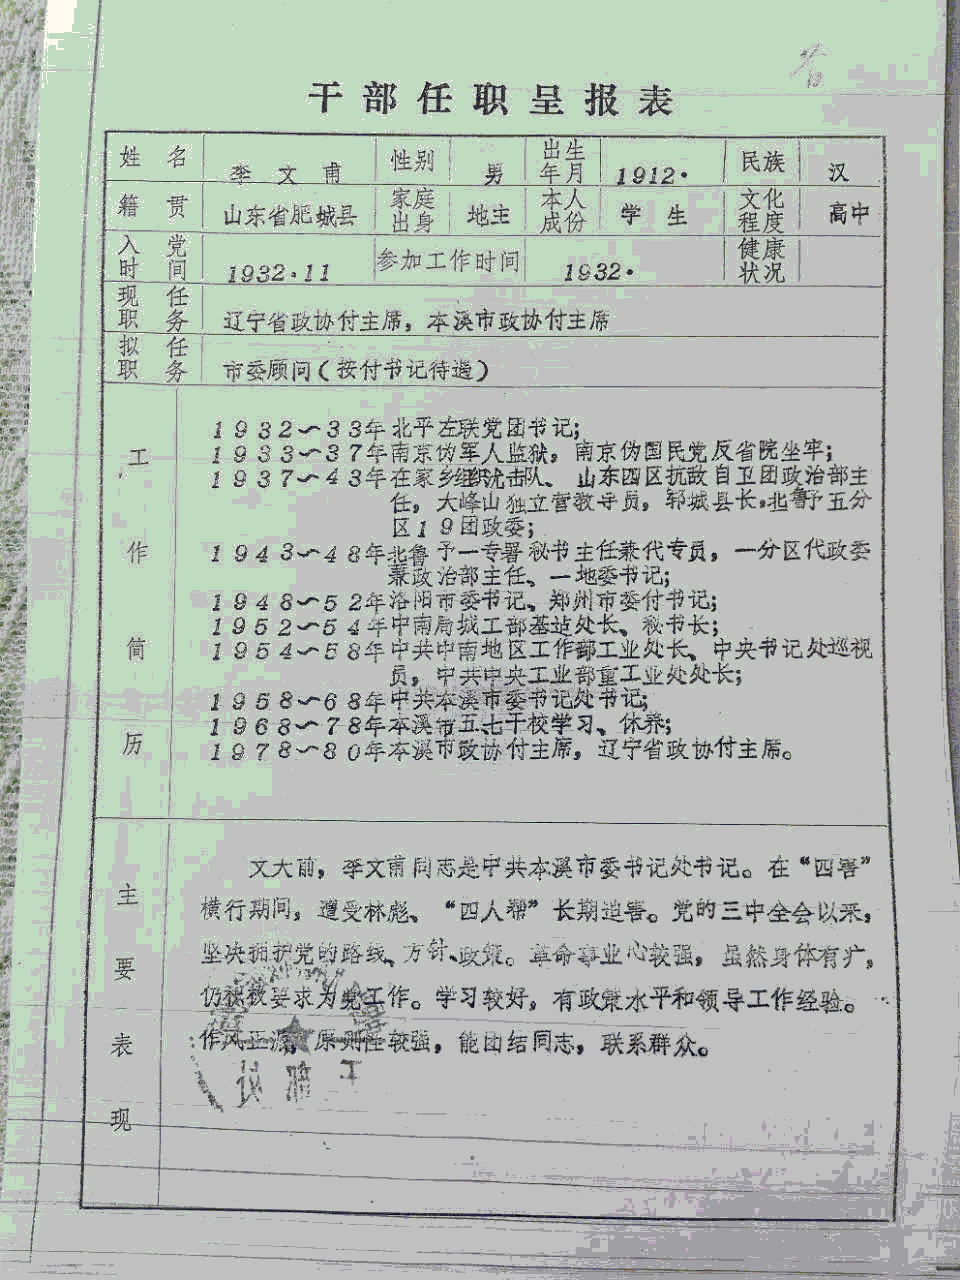 干部任职呈报表
姓名 李文甫 性别 男 出生年月 1912. 民族 汉
籍贯 山东省肥城县 家庭出身 地主 本人成份 学生 文化程度 高中
入党时间 1932.11 参加工作时间 1932. 健康状况
现任职务 辽宁省政协付主席，本溪市政协付主席
拟任职务 市委顾问（按付书记待遇）
工作简历
1932～33年北平左联党团书记；
1933～37年南京伪军人监狱，南京伪国民党反省院坐牢；
1937～43年在家乡组织游击队、山东四区抗敌自卫团政治部主
任，大峰山独立营教导员，郓城县长，北鲁予五分
区19团政委；
1943～48年北鲁予一专署秘书主任兼代专员，一分区代政委
兼政治部主任、一地委书记；
1948～52年洛阳市委书记、郑州市委付书记；
1952～54年中南局城工部基边处长、秘书长；
1954～58年中共中南地区工作部工业处长、中央书记处巡视
员，中共中央工业部重工业处处长；
1958～68年中共本溪市委书记处书记；
1968～78年本溪市五七干校学习、休养；
1978～80年本溪市政协付主席，辽宁省政协付主席。
主要表现
文大前，李文甫同志是中共本溪市委书记处书记。在“四害”
横行期间，遭受林彪、“四人帮”长期迫害。党的三中全会以来，
坚决拥护党的路线、方针、政策。革命事业心较强，虽然身体有疒，
仍积极要求为党工作。学习较好，有政策水平和领导工作经验。
作风正派，原则性较强，能团结同志，联系群众。